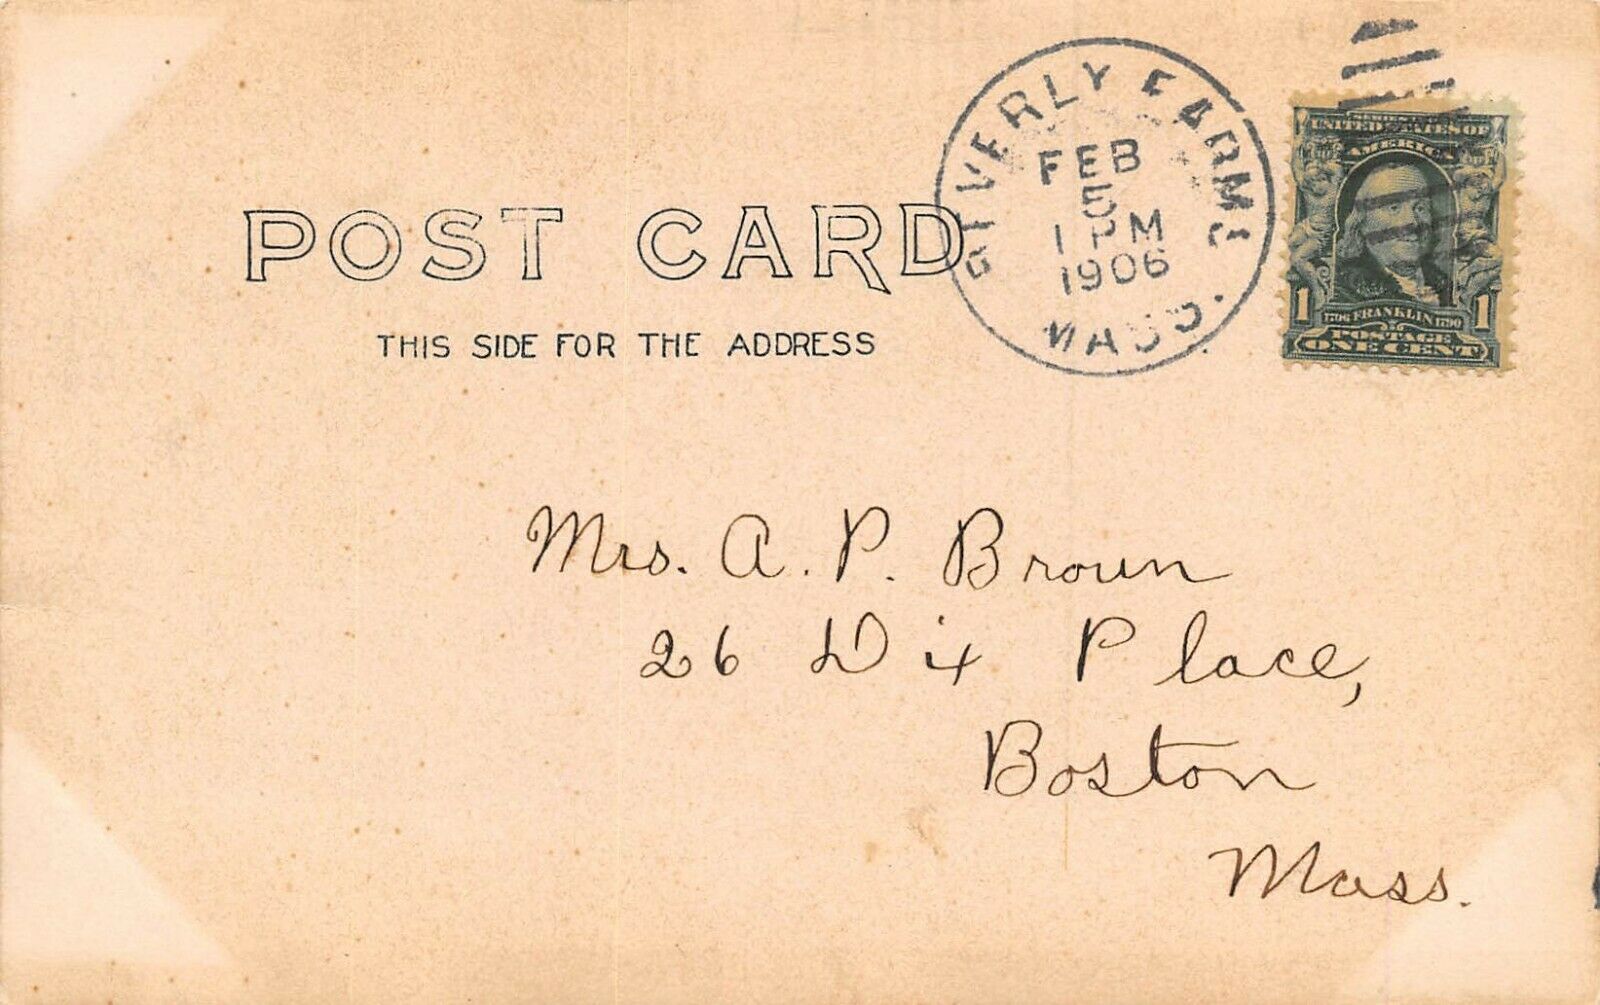 POST CARD
THIS SIDE FOR THE ADDRESS
BEVERLY FARMS
FEB
5
1 PM
1906
MASS.
UNITED STATES OF
AMERICA
1 1706 FRANKLIN 1790 1
POSTAGE
ONE CENT
Mrs. A. P. Brown
26 Dix Place,
Boston
Mass.